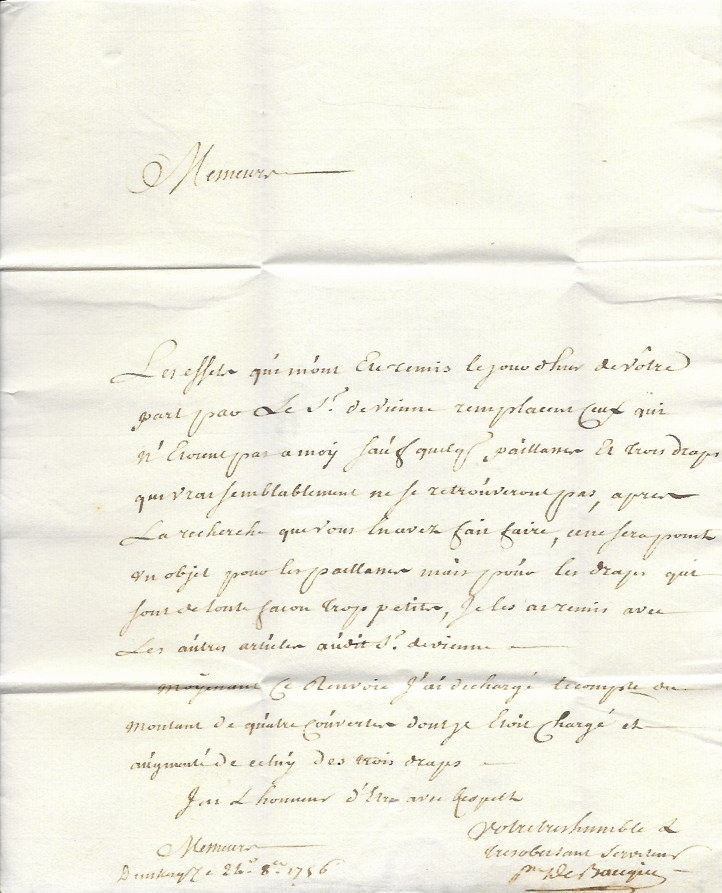 Messieurs
Les effets qui m'ont Eté remis le jour d'huy de vôtre
part par Le Sr. de vienne remplacent Ceux qui
N' Etoient pas a moy sauf quelqs paillasses Et trois draps
qui vrai semblablement ne se retrouveront pas, apres
La recherche que vous En avez fait faire, ce ne sera point
un objet pour les paillasses mais pour les draps qui
sont de toute facon trop petits, Je les ai remis avec
Les autres articles audit Sr. de vienne
Moyenant Ce Renvoie J'ai dechargé le compte du
Montant de quatre Couvertes dont je Etoit Chargé et
augmenté de celuy des trois draps
J'ai L honneur d'Etre avec Respect
Votre tres humble &
tres obeissant Serviteur
Messieurs
8re 1756